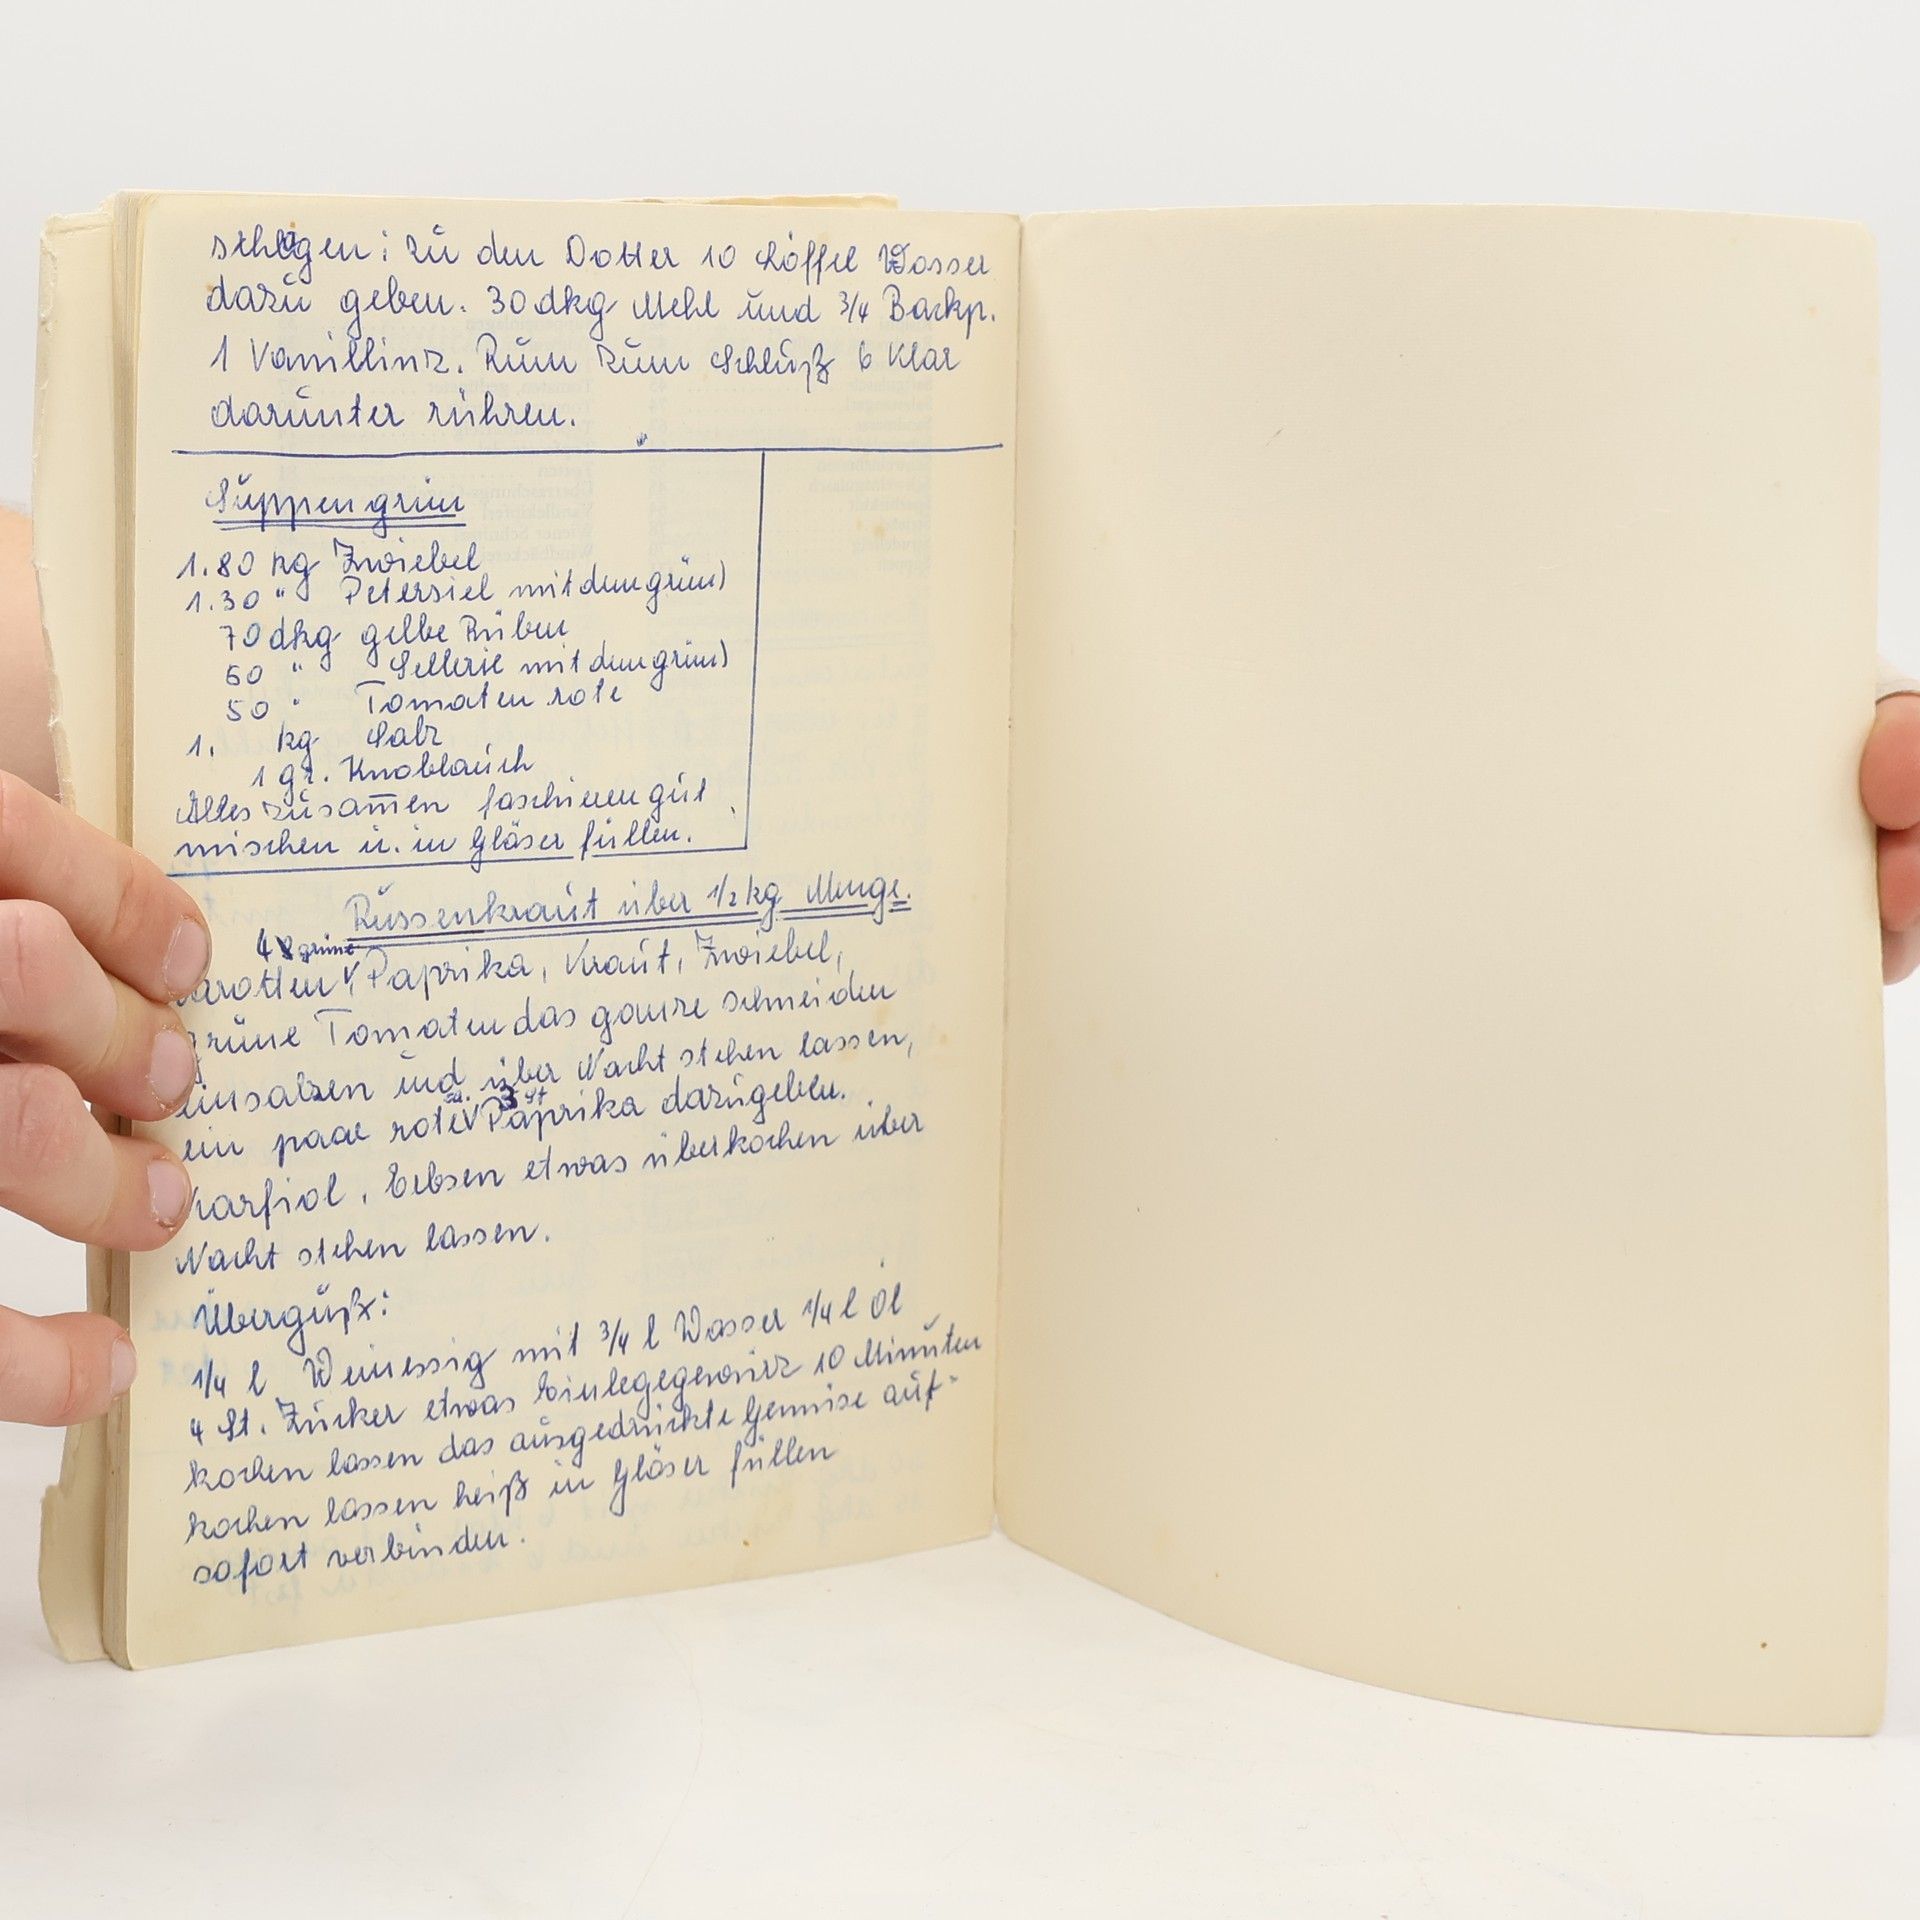 schlagen: zu den Dotter 10 Löffel Wasser
dazu geben. 30 dkg Mehl und 3/4 Backp.
1 Vanillinz. Rum zum Schluß 6 Klar
darunter rühren.
Suppengrün
1.80 kg Zwiebel
1.30 " Petersiel mit dem grün)
70 dkg gelbe Rüben
60 " Sellerie mit dem grün)
50 " Tomaten rote
1. kg Salz
1 gr. Knoblauch
Alles zusam̅en faschieren gut
mischen u. in Gläser füllen.
Russenkraut über 1/2 kg Menge.
4 grüne
arotten, Paprika, Kraut, Zwiebel,
grüne Tomaten das ganze schneiden
einsalzen und über Nacht stehen lassen,
ca. 3 St
ein paar rote Paprika dazugeben.
Karfiol, Erbsen etwas überkochen über
Nacht stehen lassen.
Überguß:
1/4 l Weinessig mit 3/4 l Wasser 1/4 l Öl
4 St. Zucker etwas Einlegegewürz 10 Minuten
kochen lassen das ausgedrückte Gemüse auf-
kochen lassen heiß in Gläser füllen
sofort verbinden.